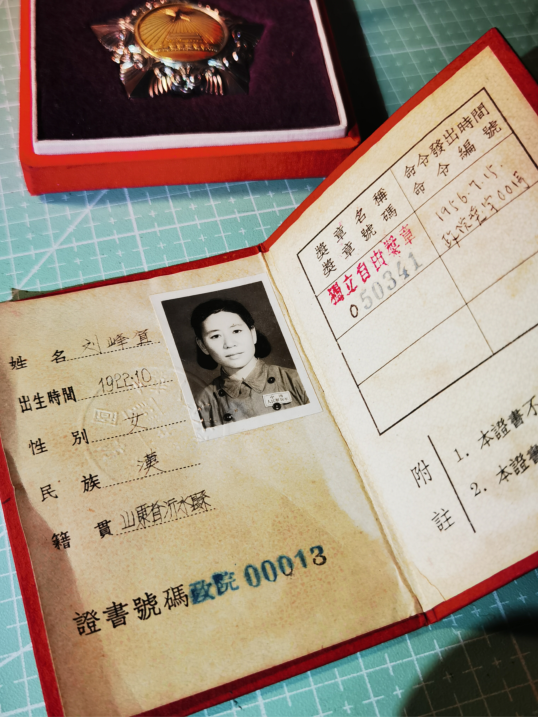 姓名 刘峰宜
出生時間 1922.10
性别 女
民族 漢
籍貫 山東省沂水縣
證書號碼 政院 00013
獎章名稱
獎章號碼
命令發出時間
命令編號
獨立自由獎章
050341
1956.7.15.
政院
附註
1. 本證書不
2. 本證書